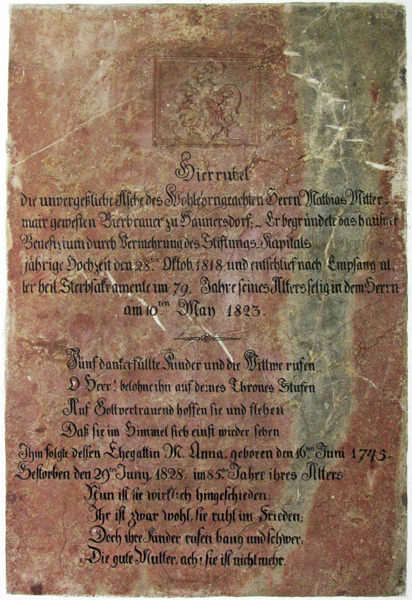 Hier ruhet
die unvergeßliche Asche des Wohlehrngeachten Herrn Mathias Mitter-
mair gewesten Bierbrauer zu Haunersdorf, Er begründete das hausner
Benefizium durch Vermehrung des Stiftungs Kapitals
jährige Hochzeit den 28ten Oktob. 1818 und entschlief nach Empfang al-
ler heil. Sterbsakramente im 79. Jahre seines Alters selig in dem Herrn
am 10ten May 1823.
Fünf dankerfüllte Kinder und die Wittwe rufen
O Herr! belohne ihn auf deines Thrones Stufen
Auf Gott vertrauend hoffen sie und flehen
Daß sie im Himmel sich einst wieder sehen
Ihm folgte dessen Ehegattin M. Anna, geboren den 16ten Juni 1743.
Gestorben den 29ten Juny. 1828. im 85ten Jahre ihres Alters
Nun ist sie wirklich hingeschieden;
Ihr ist zwar wohl, sie ruht im Frieden;
Doch ihre Kinder rufen bang und schwer,
Die gute Mutter, ach! sie ist nicht mehr.